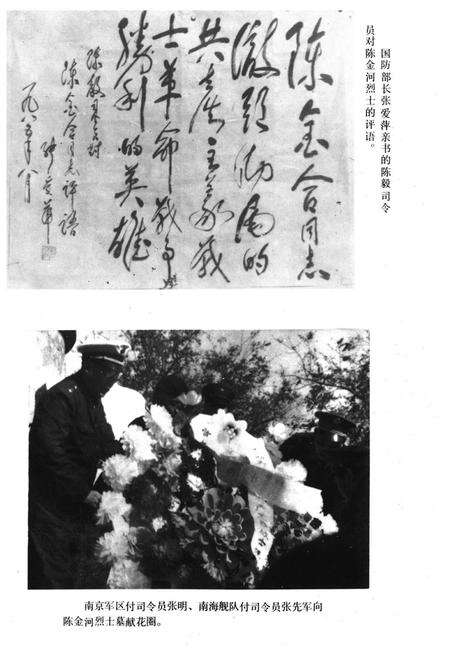 国防部长张爱萍亲书的陈毅司令
员对陈金河烈士的评语。
陈金合同志
徹頭徹尾的
共产主义战
士革命战争與
勝利的英雄
陈毅司令对
陈金合同志评语
张爱萍
一九八五年八月
南京军区付司令员张明、南海舰队付司令员张先军向
陈金河烈士墓献花圈。